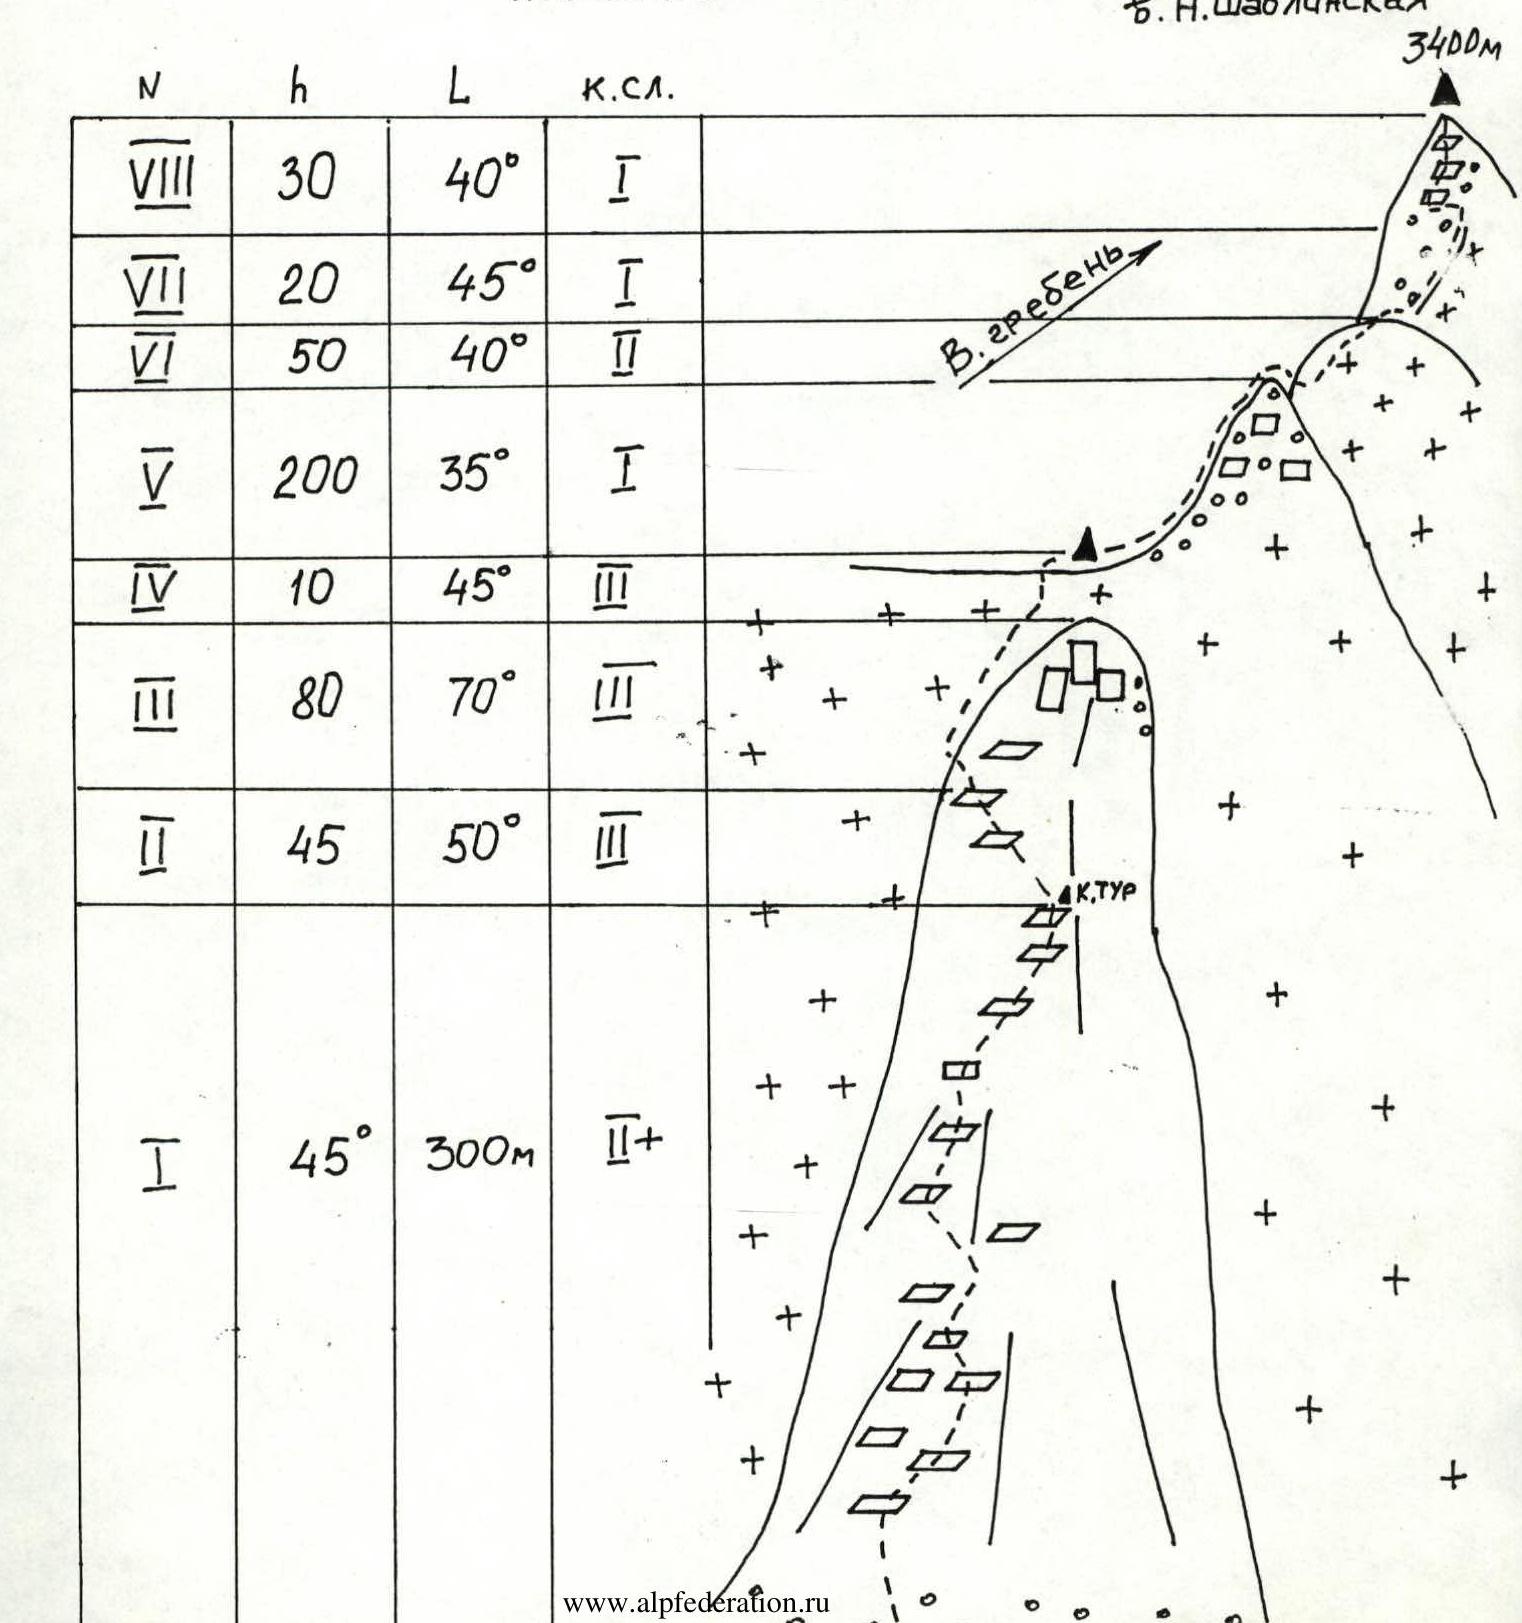 Б. Н. Шаблинская
3400м
N h L к.сл.
VIII 30 40° I
VII 20 45° I
VI 50 40° II
В. гребень
V 200 35° I
IV 10 45° III
III 80 70° III
II 45 50° III
К.ТУР
I 45° 300м II+
www.alpfederation.ru